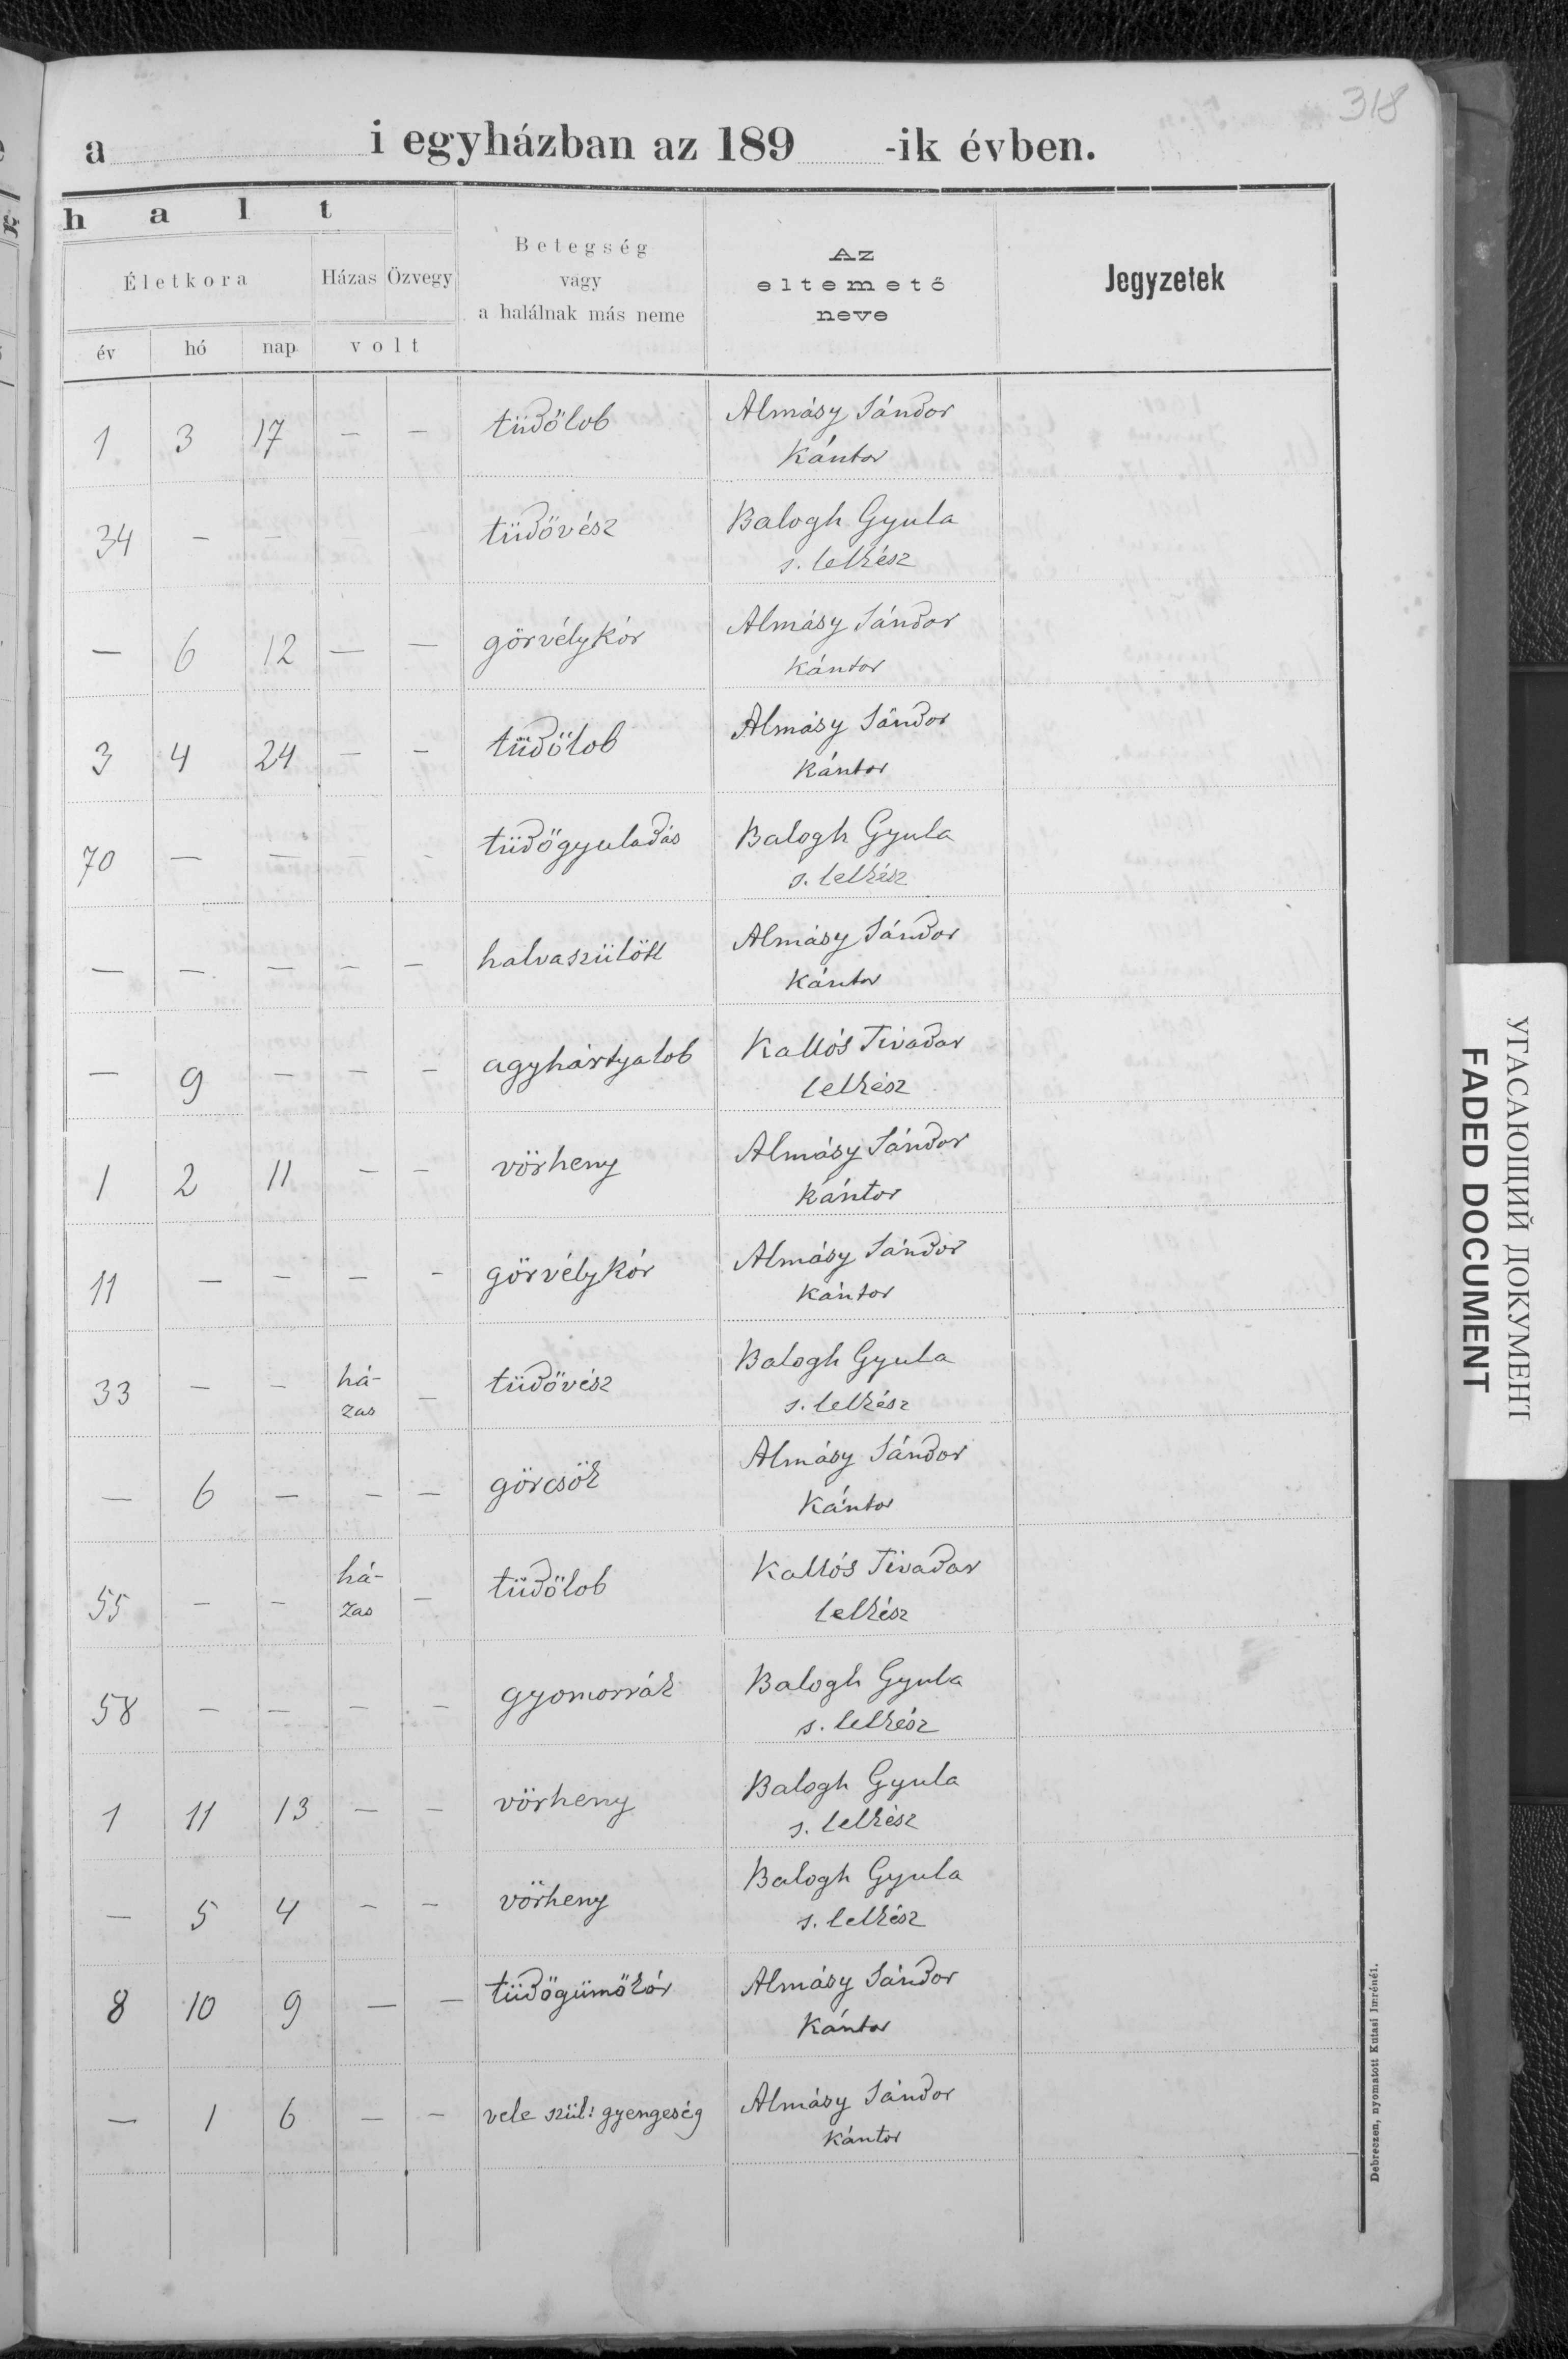 318
a i egyházban az 189 -ik évben.
h a l t
Életkora Házas Özvegy Betegség vagy a halálnak más neme Az eltemető neve Jegyzetek
év hó nap volt
1 3 17 — — tüdőlob Almásy Sándor
Kántor
34 — — — — tüdővész Balogh Gyula
s. lelkész
— 6 12 — — görvélykór Almásy Sándor
Kántor
3 4 24 — — tüdőlob Almásy Sándor
Kántor
70 — — — — tüdőgyuladás Balogh Gyula
s. lelkész
— — — — — halvaszülött Almásy Sándor
Kántor
— 9 — — — agyhártyalob Kallós Tivadar
lelkész
1 2 11 — — vörheny Almásy Sándor
Kántor
11 — — — — görvélykór Almásy Sándor
Kántor
33 — — há- — tüdővész Balogh Gyula
zas s. lelkész
— 6 — — — görcsök Almásy Sándor
Kántor
55 — — há- — tüdőlob Kallós Tivadar
zas lelkész
58 — — — — gyomorrák Balogh Gyula
s. lelkész
1 11 13 — — vörheny Balogh Gyula
s. lelkész
— 5 4 — — vörheny Balogh Gyula
s. lelkész
8 10 9 — — tüdőgümőkór Almásy Sándor
Kántor
— 1 6 — — vele szül: gyengeség Almásy Sándor
Kántor
Debreczen, nyomatott Kutasi Imrénél.
УГАСАЮЩИЙ ДОКУМЕНТ
FADED DOCUMENT